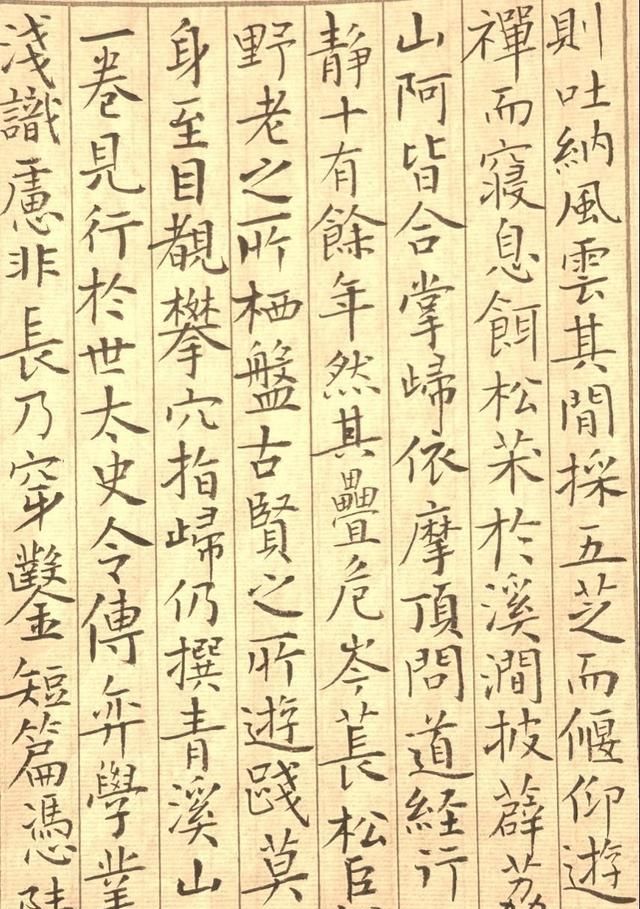 則吐納風雲其間採五芝而偃仰遊
禪而寢息餌松朮於溪澗披薜荔
山阿皆合掌歸依摩頂問道経行
靜十有餘年然其疊危岑萇松巨
野老之所栖盤古賢之所遊踐莫
身至目覩攀穴指歸仍撰青溪山
一卷見行於世太史令傅弈學業
淺識慮非長乃穿鑿短篇憑陵